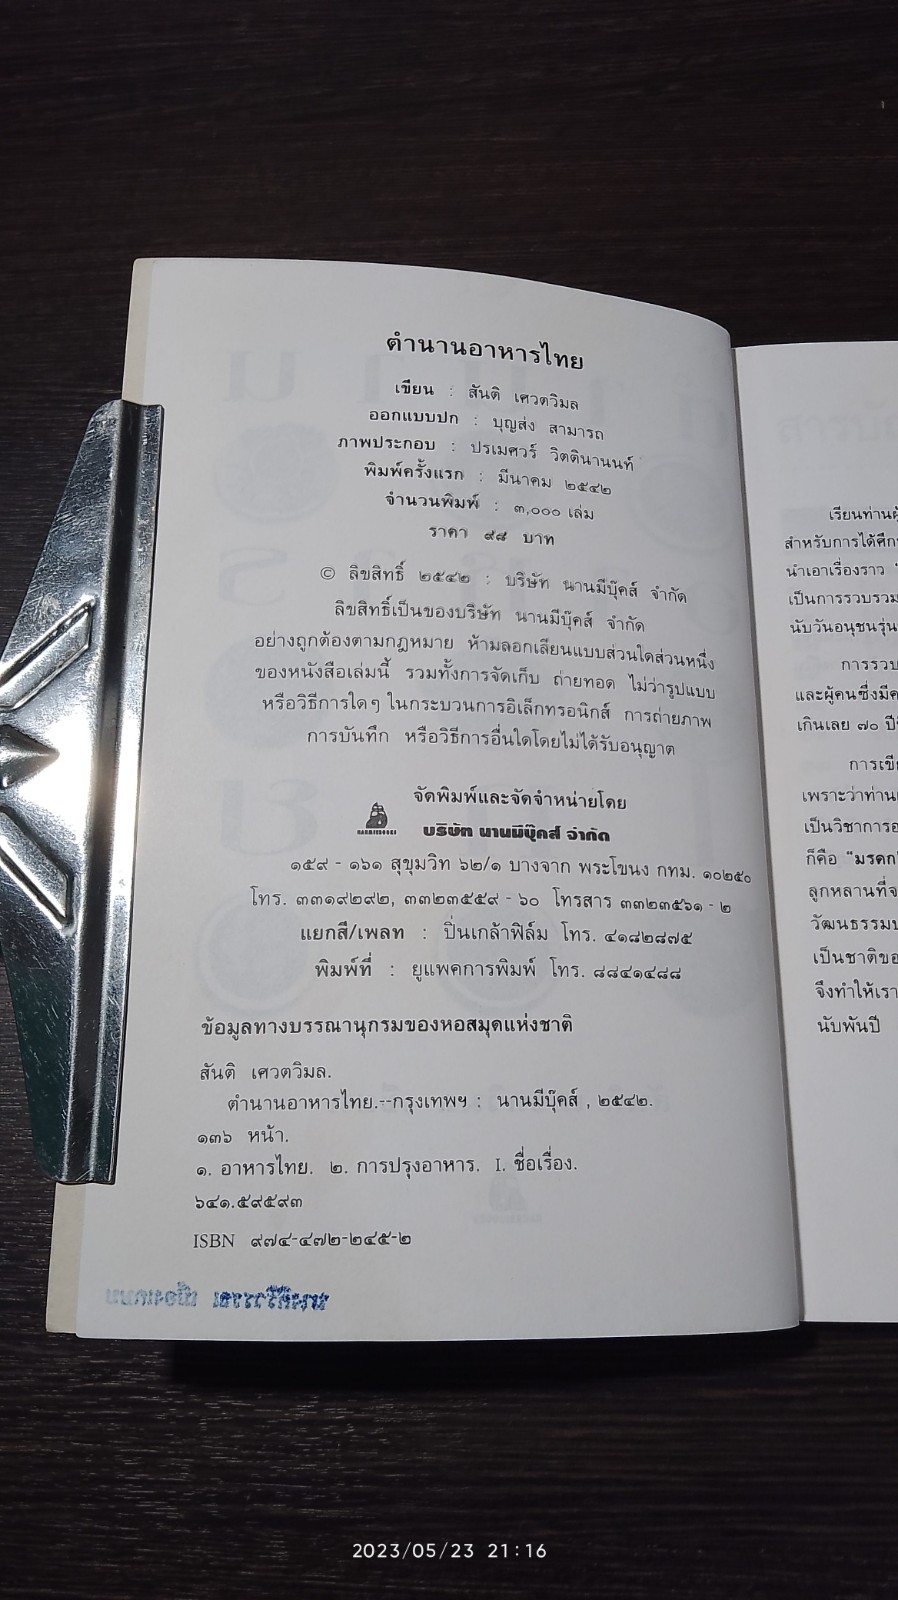 ตำนานอาหารไทย
เขียน : สันติ เศวตวิมล
ออกแบบปก : บุญส่ง สามารถ
ภาพประกอบ : ปรเมศวร์ วิตตินานนท์
พิมพ์ครั้งแรก : มีนาคม ๒๕๔๒
จำนวนพิมพ์ : ๓,๐๐๐ เล่ม
ราคา ๙๘ บาท
© ลิขสิทธิ์ ๒๕๔๒ : บริษัท นานมีบุ๊คส์ จำกัด
ลิขสิทธิ์เป็นของบริษัท นานมีบุ๊คส์ จำกัด
อย่างถูกต้องตามกฎหมาย ห้ามลอกเลียนแบบส่วนใดส่วนหนึ่ง
ของหนังสือเล่มนี้ รวมทั้งการจัดเก็บ ถ่ายทอด ไม่ว่ารูปแบบ
หรือวิธีการใดๆ ในกระบวนการอิเล็กทรอนิกส์ การถ่ายภาพ
การบันทึก หรือวิธีการอื่นใดโดยไม่ได้รับอนุญาต
จัดพิมพ์และจัดจำหน่ายโดย
NANMEEBOOKS
บริษัท นานมีบุ๊คส์ จำกัด
๑๕๙ - ๑๖๑ สุขุมวิท ๖๒/๑ บางจาก พระโขนง กทม. ๑๐๒๕๐
โทร. ๓๓๑๙๒๙๒, ๓๓๒๓๕๕๙ - ๖๐ โทรสาร ๓๓๒๓๕๖๑ - ๒
แยกสี/เพลท : ปิ่นเกล้าฟิล์ม โทร. ๔๑๘๒๘๗๕
พิมพ์ที่ : ยูแพคการพิมพ์ โทร. ๘๘๔๑๔๘๘
ข้อมูลทางบรรณานุกรมของหอสมุดแห่งชาติ
สันติ เศวตวิมล.
ตำนานอาหารไทย.--กรุงเทพฯ : นานมีบุ๊คส์, ๒๕๔๒.
๑๓๖ หน้า.
๑. อาหารไทย. ๒. การปรุงอาหาร. I. ชื่อเรื่อง.
๖๔๑.๕๙๕๙๓
ISBN ๙๗๔-๔๗๒-๒๔๕-๒
เรียนท่านผู้
สำหรับการได้ศึก
นำเอาเรื่องราว
เป็นการรวบรวม
นับวันอนุชนรุ่น
การรวบ
และผู้คนซึ่งมีค
เกินเลย ๗๐ ปี
การเขีย
เพราะว่าท่าน
เป็นวิชาการอ
ก็คือ "มรดก
ลูกหลานที่จ
วัฒนธรรม
เป็นชาติขอ
จึงทำให้เรา
นับพันปี
2023/05/23 21:16